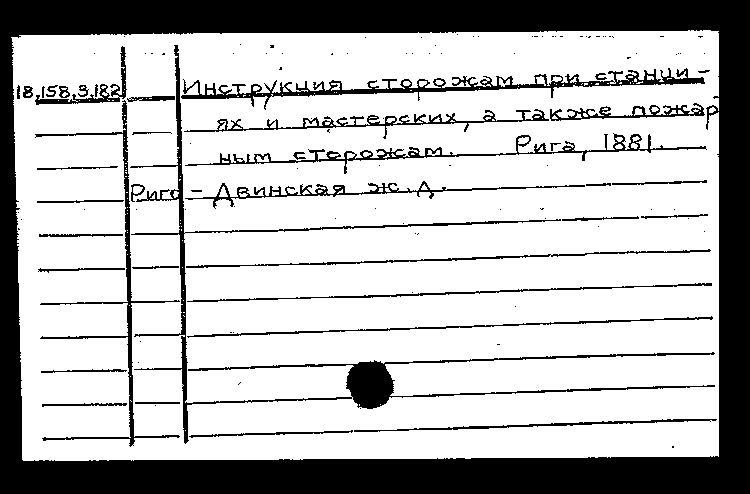 18,158,3,182 Инструкция сторожам при станци-
ях и мастерских, а также пожар
ным сторожам. Рига, 1881.
Риго - Двинская ж.д.